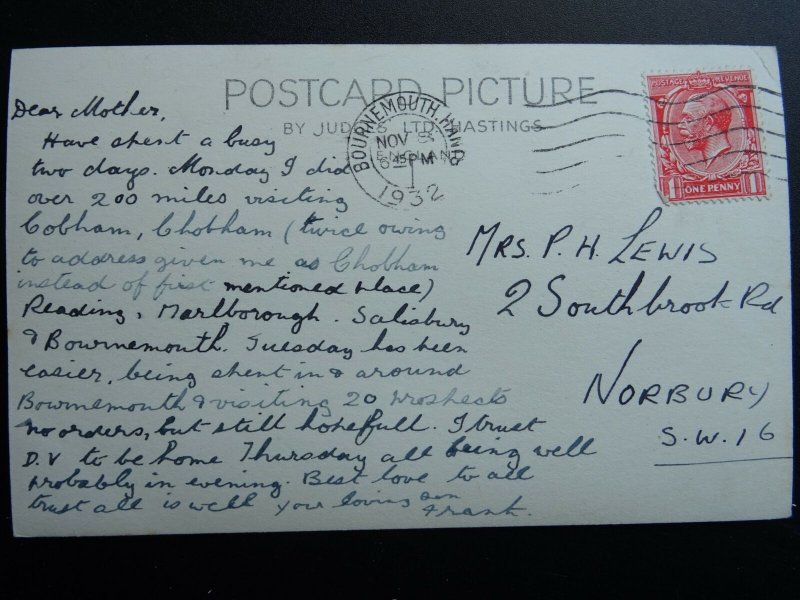 POSTCARD PICTURE
BY JUDGES LTD, HASTINGS.
BOURNEMOUTH, HANTS
NOV
6 45 PM
ENGLAND
1932
POSTAGE REVENUE
ONE PENNY
1 1
Dear Mother,
Have spent a busy
two days. Monday I did
over 200 miles visiting
Cobham, Chobham (twice owing
to address given me as Chobham
instead of first mentioned place)
Reading, Marlborough. Salisbury
& Bournemouth. Tuesday has been
easier, being spent in & around
Bournemouth & visiting 20 prospects
no orders, but still hopefull. I trust
D.V to be home Thursday all being well
probably in evening. Best love to all
trust all is well your loving son
Frank.
MRS. P. H. LEWIS
2 Southbrook Rd
NORBURY
S.W.16